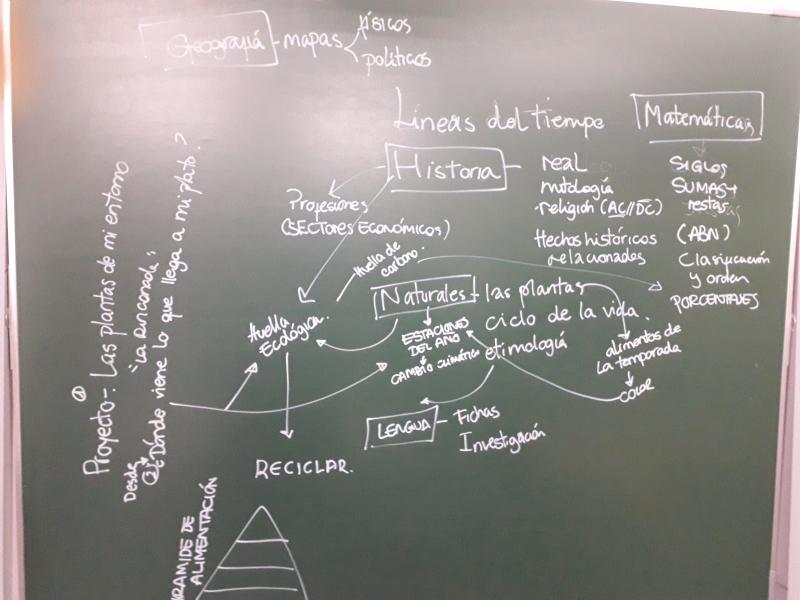 Geografía - mapas
físicos
políticos
Líneas del tiempo
Matemáticas
Historia -
real
mitología
religión (AC//DC)
Hechos históricos
relacionados
SIGLOS
SUMAS y
restas
(ABN)
Clasificación
y orden
PORCENTAJES
Profesiones
(SECTORES ECONÓMICOS)
Huella de
carbono.
Huella
Ecológica.
Naturales - las plantas
ciclo de la vida.
etimología
ESTACIONES
DEL AÑO
CAMBIO CLIMÁTICO
alimentos de
La temporada
COLOR
LENGUA - Fichas
Investigación
RECICLAR.
① Proyecto-: Las plantas de mi entorno
Desde "La Rinconada"
② ¿Dónde viene lo que llega a mi plato?
RAMIDE DE
ALIMENTACIÓN